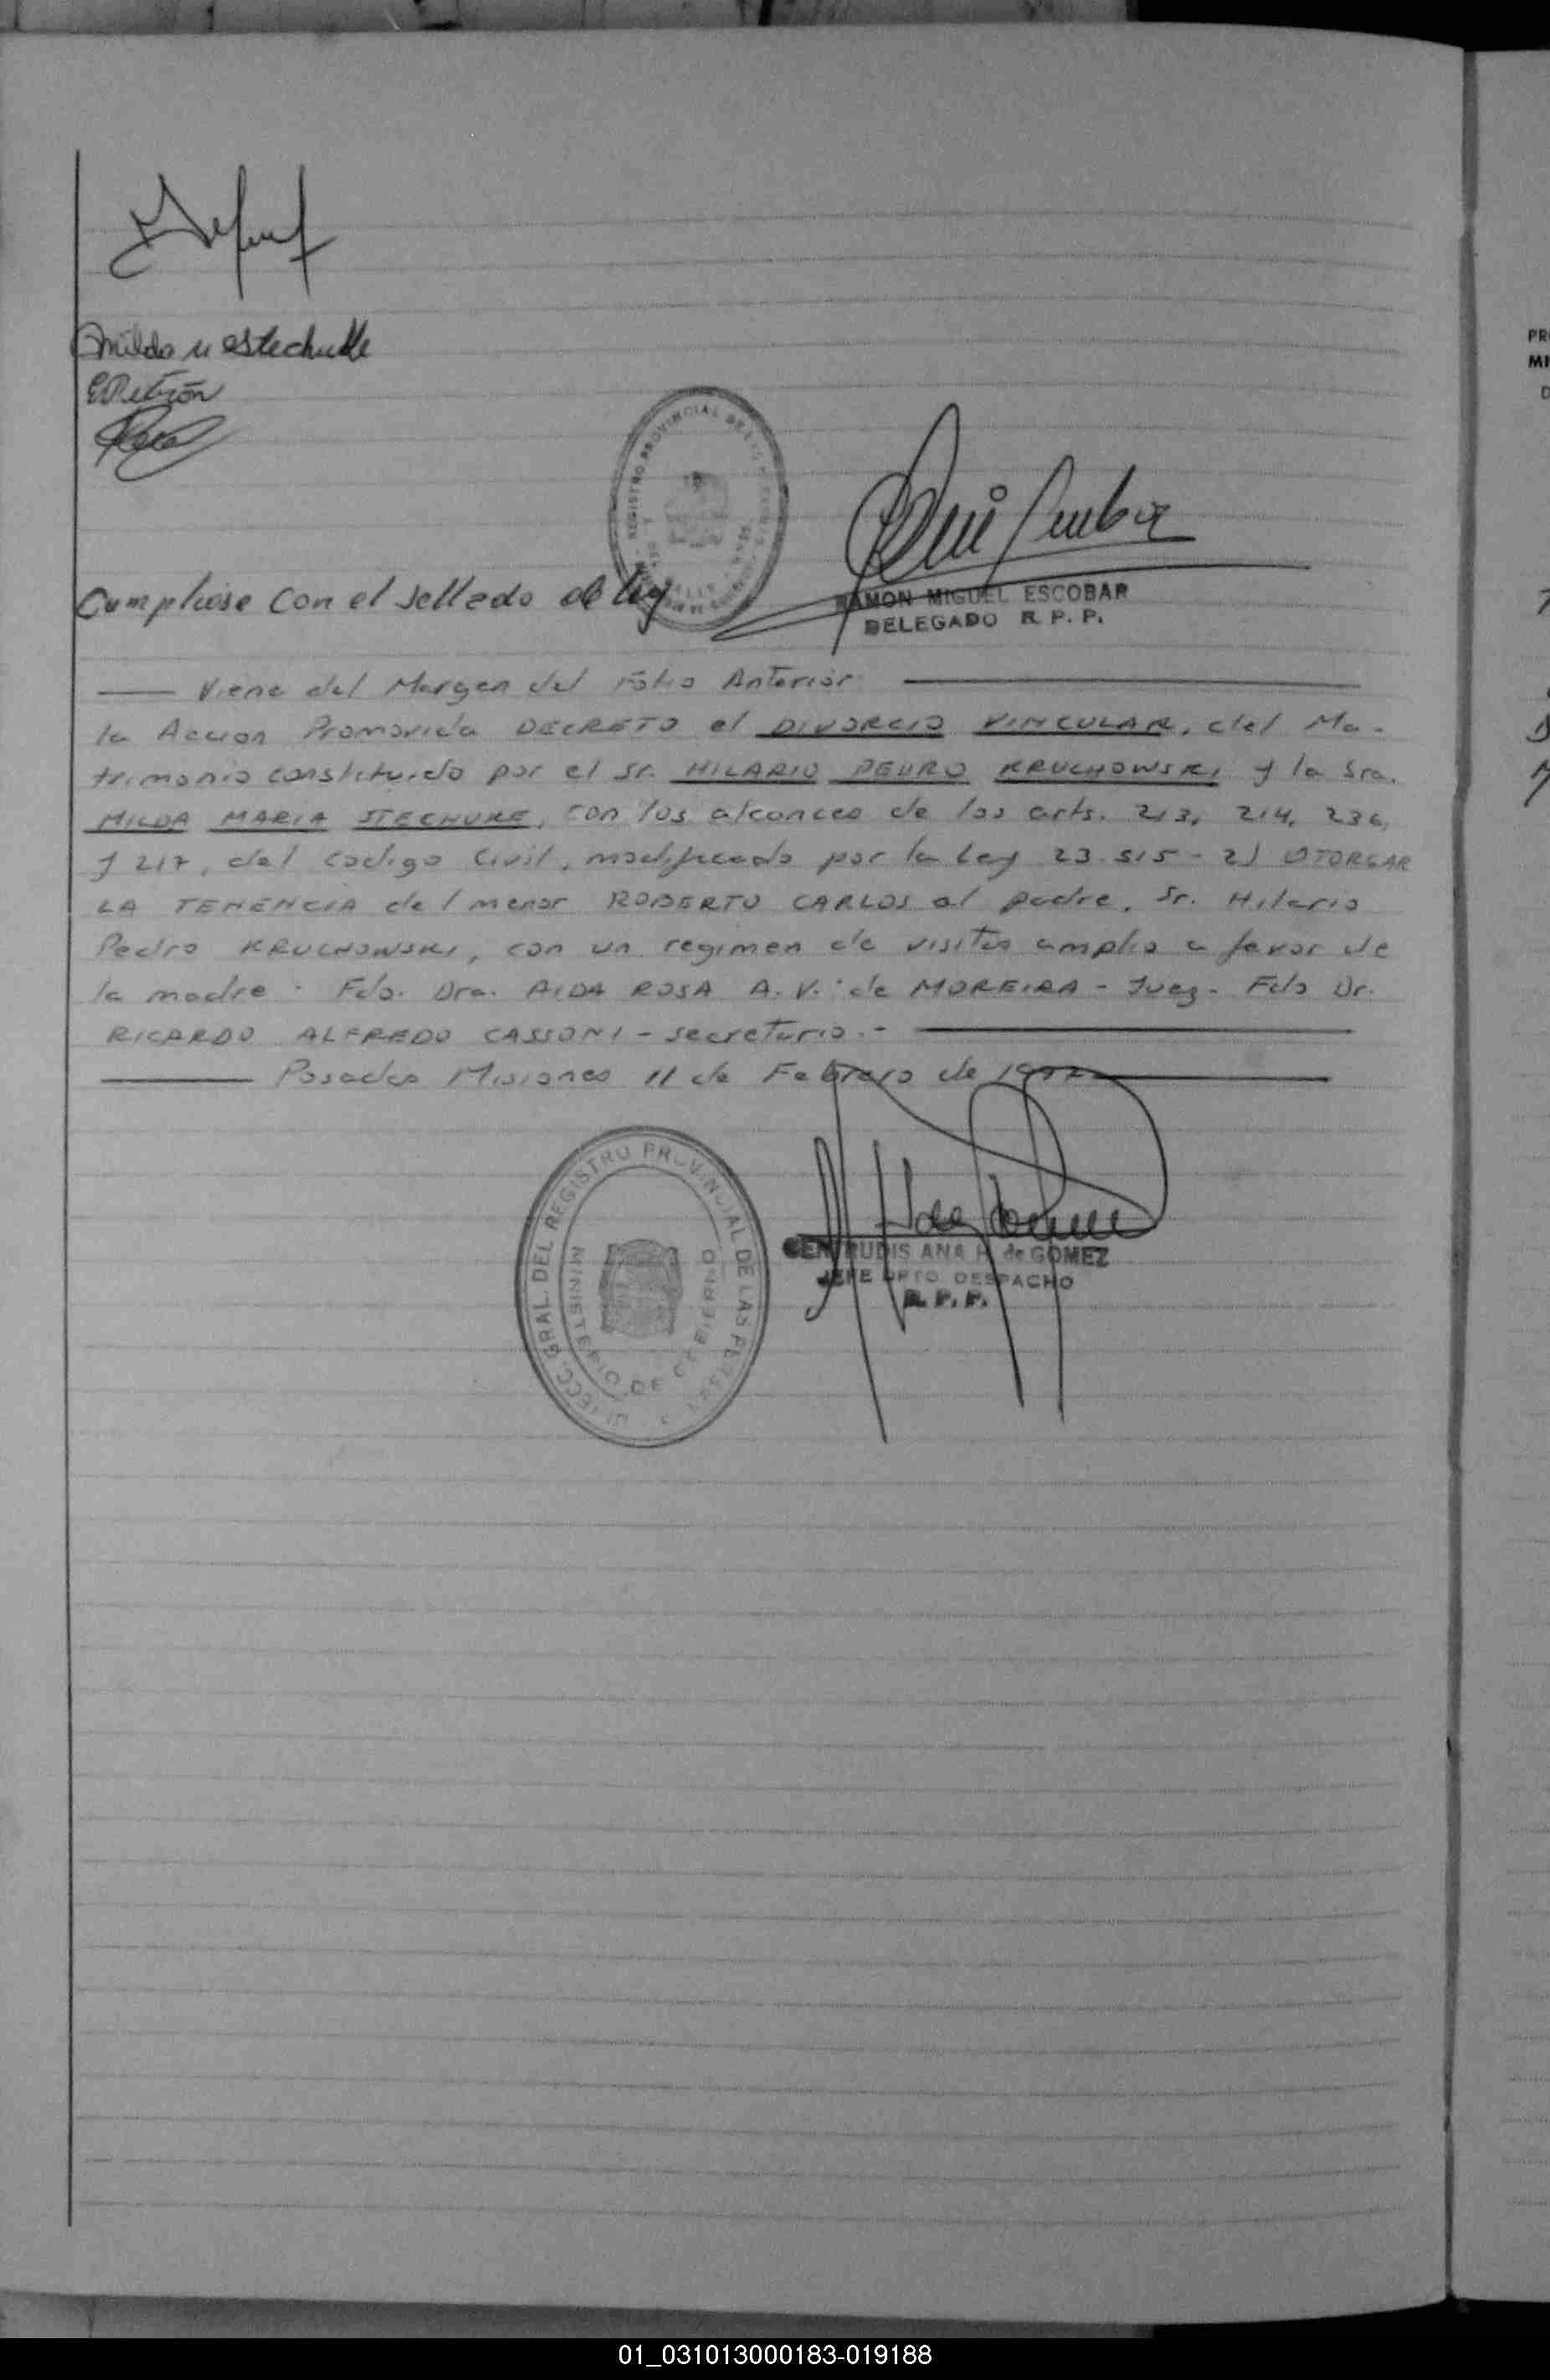 Milda M estechuke
Cumpliose con el sellado de ley
REGISTRO PROVINCIAL DE LAS PERSONAS
RAMON MIGUEL ESCOBAR
DELEGADO R. P. P.
Viene del Margen del Folio Anterior
la Accion Promovida DECRETO el DIVORCIO VINCULAR, del Ma-
trimonio constituido por el sr. HILARIO PEDRO KRUCHOWSKI y la Sra.
MILDA MARIA STECHUKE, con los alcances de los arts. 213, 214, 236,
y 217, del codigo Civil, modificado por la Ley 23.515 - 2) OTORGAR
LA TENENCIA del menor ROBERTO CARLOS al padre, Sr. Hilario
Pedro KRUCHOWSKI, con un regimen de visitas amplio a favor de
la madre. Fdo. Dra. AIDA ROSA A. V. de MOREIRA - Juez - Fdo Dr.
RICARDO ALFREDO CASSONI - secretario.-
Posadas Misiones 11 de Febrero de 1992
DIRECC. GRAL. DEL REGISTRO PROVINCIAL DE LAS PERSONAS
MINISTERIO DE GOBIERNO
GERTRUDIS ANA H. de GOMEZ
JEFE DPTO DESPACHO
R. P. P.
PR
MI
D
01_031013000183-019188